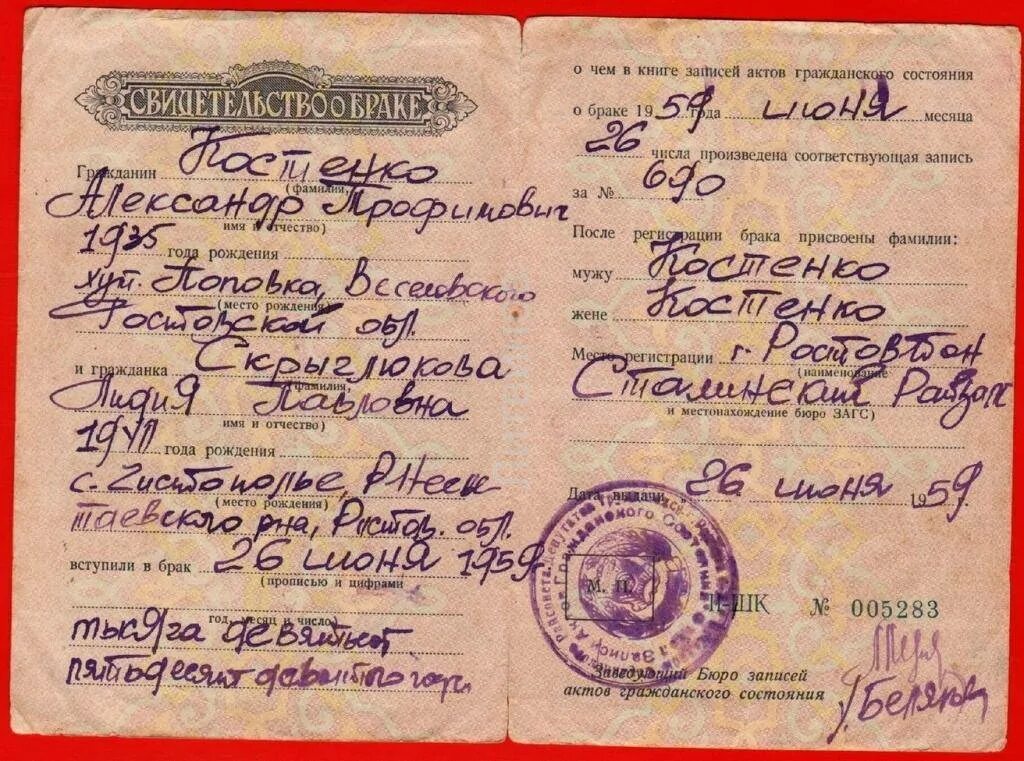 СВИДЕТЕЛЬСТВО О БРАКЕ
Гражданин Костенко
(фамилия,
Александр Трофимович
имя и отчество)
1935 года рождения
хут. Поповка, Веселовского
(место рождения)
Ростовской обл.
и гражданка Скрыглюкова
фамилия,
Лидия Павловна
имя и отчество)
года рождения
с. Чистополье,
(место рождения)
таевского рна, Ростов. обл.
вступили в брак 26 июня 1959г
(прописью и цифрами
год, месяц и число)
тысяча девятьсот
пятьдесят девятого года
о чем в книге записей актов гражданского состояния
о браке 1959 года июня месяца
26 числа произведена соответствующая запись
за № 690
После регистрации брака присвоены фамилии:
мужу Костенко
жене Костенко
Место регистрации г. Ростов Дон
(наименование
Сталинский Райзагс
и местонахождение бюро ЗАГС)
Дата выдачи „ 26 июня 1959.
М. П.
II-ШК № 005283
Заведующий Бюро записей
актов гражданского состояния